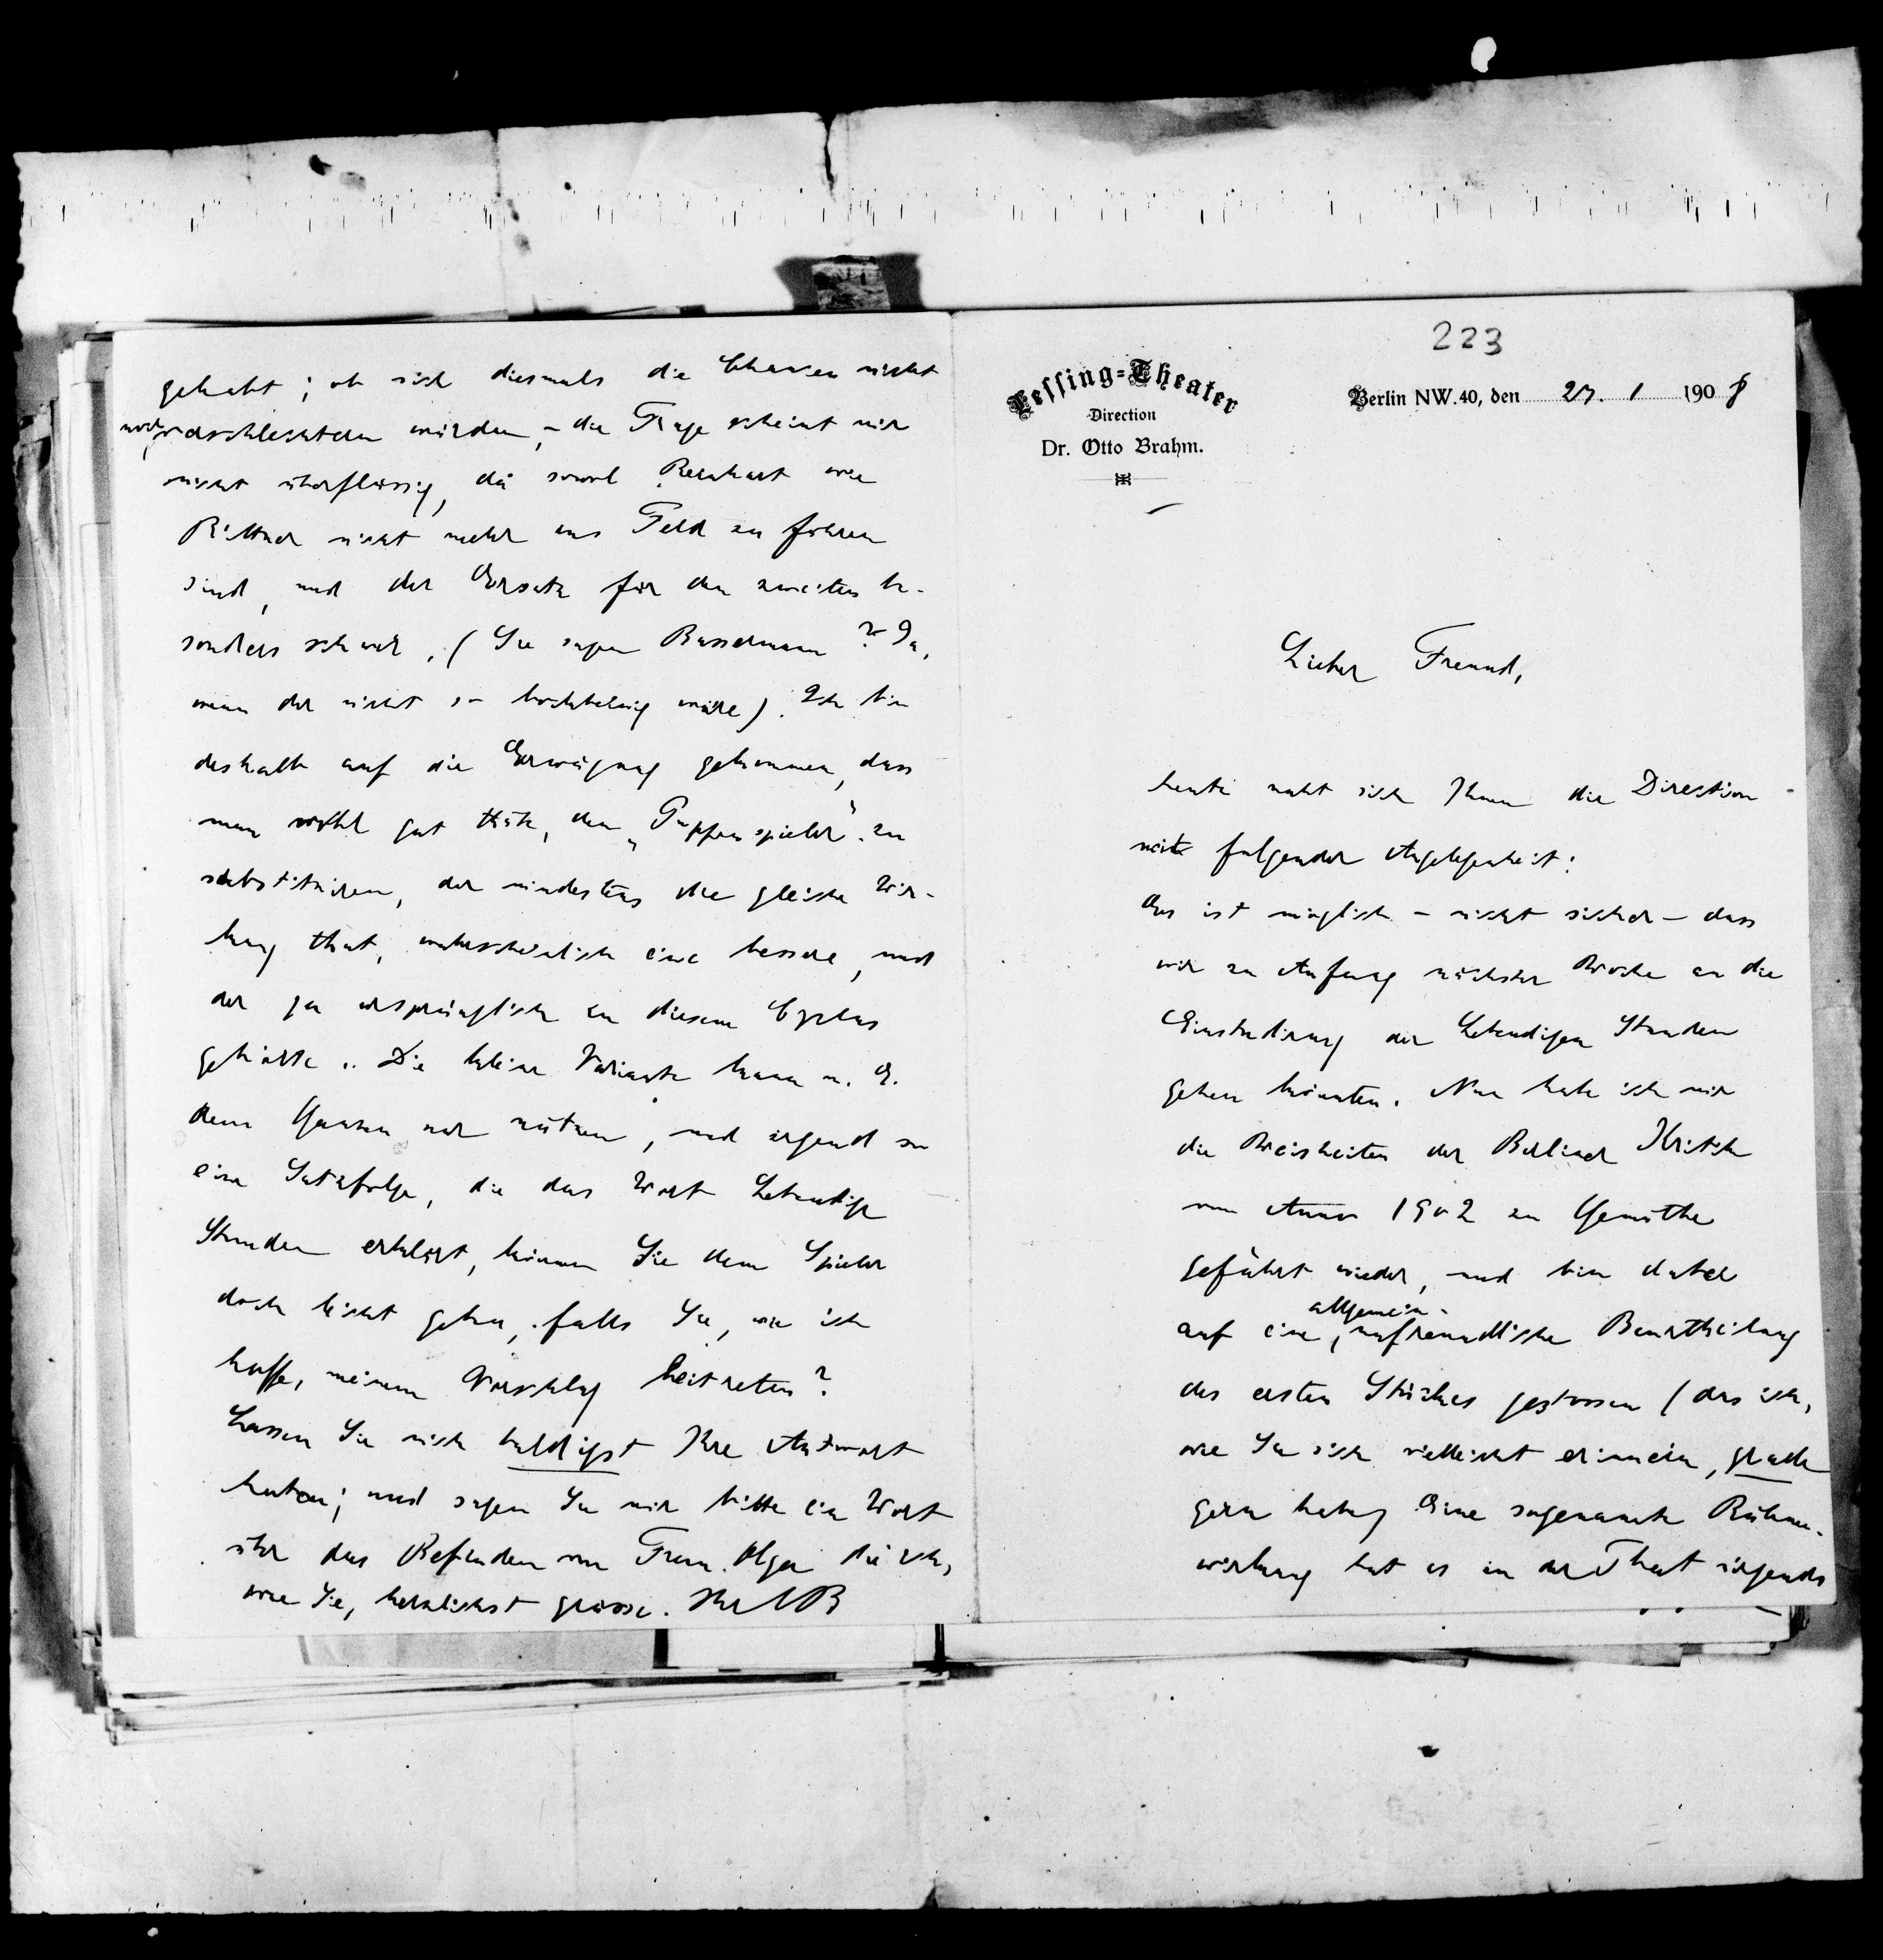 223
Lessing-Theater
Direction
Dr. Otto Brahm.
Berlin NW. 40, den 27. 1 1908
Lieber Freund,
heute naht sich Ihnen die Direction
mit folgender Angelegenheit:
Es ist möglich – nicht sicher – dass
wir zu Anfang nächster Woche an die
Einstudirung der Lebendigen Stunden
gehen könnten. Nun habe ich mir
die Weisheiten der Berliner Kritik
vom Anno 1902 zu Gemüthe
geführt wieder, und bin dabei
allgemein-
auf eine unfreundliche Beurtheilung
des ersten Stückes gestossen (das ich,
wie Sie sich vielleicht erinnern, grade
gern habe). Eine sogenannte Bühnen-
wirkung hat es in der That nirgends
gehabt; ob sich diesmals die Chancen nicht
noch
verschlechtern würden, – die Frage scheint mir
nicht überflüssig, da sowol Reinhart wie
Rittner nicht mehr ins Feld zu führen
sind, und der Ersatz für den zweiten be-
sonders schwer. (Sie sagen Bassermann? Ja,
wenn der nicht so hochbeinig wäre). Ich bin
deshalb auf die Erwägung gekommen, dass
man wohl gut thäte, den „Puppenspieler“ zu
substituiren, der mindestens die gleiche Wir-
kung that, wahrscheinlich eine bessere, und
der ja ursprünglich zu diesem Cyclus
gehörte.. Die kleine Variante kann m. E.
dem Ganzen nur nützen, und irgend so
eine Satzfolge, die das Wort Lebendige
Stunden erklärt, können Sie dem Spieler
doch leicht geben, falls Sie, wie ich
hoffe, meinem Vorschlag beitreten?
Lassen Sie mich baldigst Ihre Antwort
haben; und sagen Sie mir bitte ein Wort
über das Befinden von Frau Olga die ich,
wie Sie, herzlichst grüsse. Ihr OB